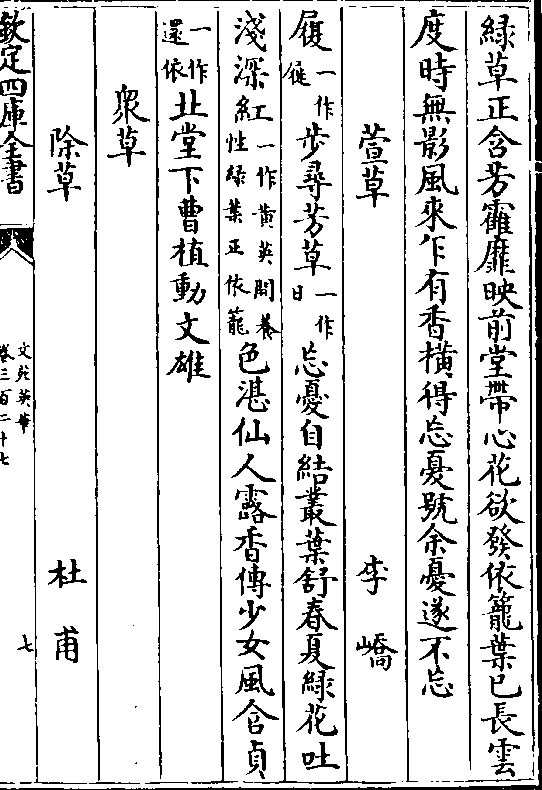 綠草正含芳霍靡映前堂帶心花欲發依籠葉已長雲
度時無影風來乍有香橫得忘憂號余憂遂不忘
萱草 李嶠
屐一作屣步尋芳草一作日忘憂自結叢葉舒春夏綠花吐
淺深紅一作黄英開養性綠葉正依籠色湛仙人露香傳少女風含貞
一作還依北堂下曹植動文雄
衆草
除草 杜甫
欽定四庫全書 文苑英華卷三百二十七 七